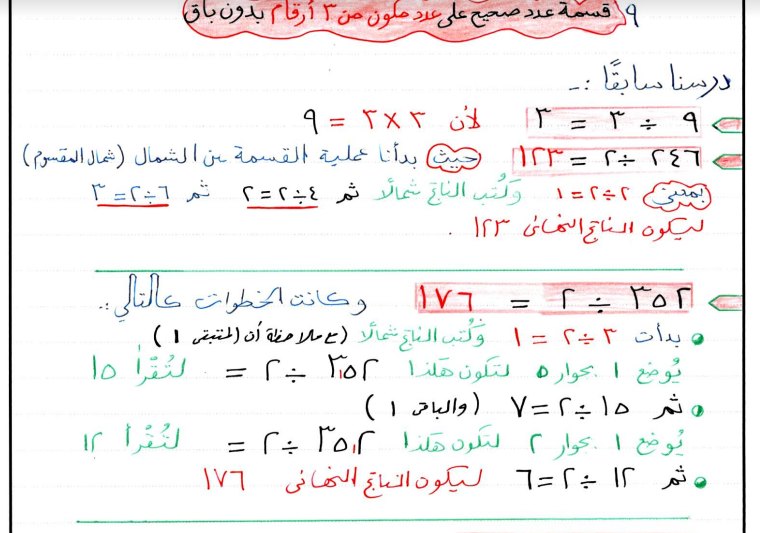 ٩ قسمة عدد صحيح على عدد مكون من ٣ أرقام بدون باق
درسنا سابقًا :-
٩ ÷ ٣ = ٣ لأن ٣ × ٣ = ٩
٢٤٦ ÷ ٢ = ١٢٣ حيث بدأنا عملية القسمة من الشمال (شمال المقسوم)
بمعنى ٢ ÷ ٢ = ١ وكُتب الناتج شمالًا ثم ٤ ÷ ٢ = ٢ ثم ٦ ÷ ٢ = ٣
ليكون الناتج النهائى ١٢٣ .
٣٥٢ ÷ ٢ = ١٧٦ وكانت الخطوات كالتالي :.
بدأت ٣ ÷ ٢ = ١ وكُتب الناتج شمالًا (مع ملاحظة أن المتبقى ١)
يُوضع ١ بجوار ٥ لتكون هكذا ٣١٥٢ ÷ ٢ = لتُقْرأ ١٥
ثم ١٥ ÷ ٢ = ٧ (والباقى ١)
يُوضع ١ بجوار ٢ لتكون هكذا ٣٥١٢ ÷ ٢ = لتُقْرأ ١٢
ثم ١٢ ÷ ٢ = ٦ ليكون الناتج النهائى ١٧٦